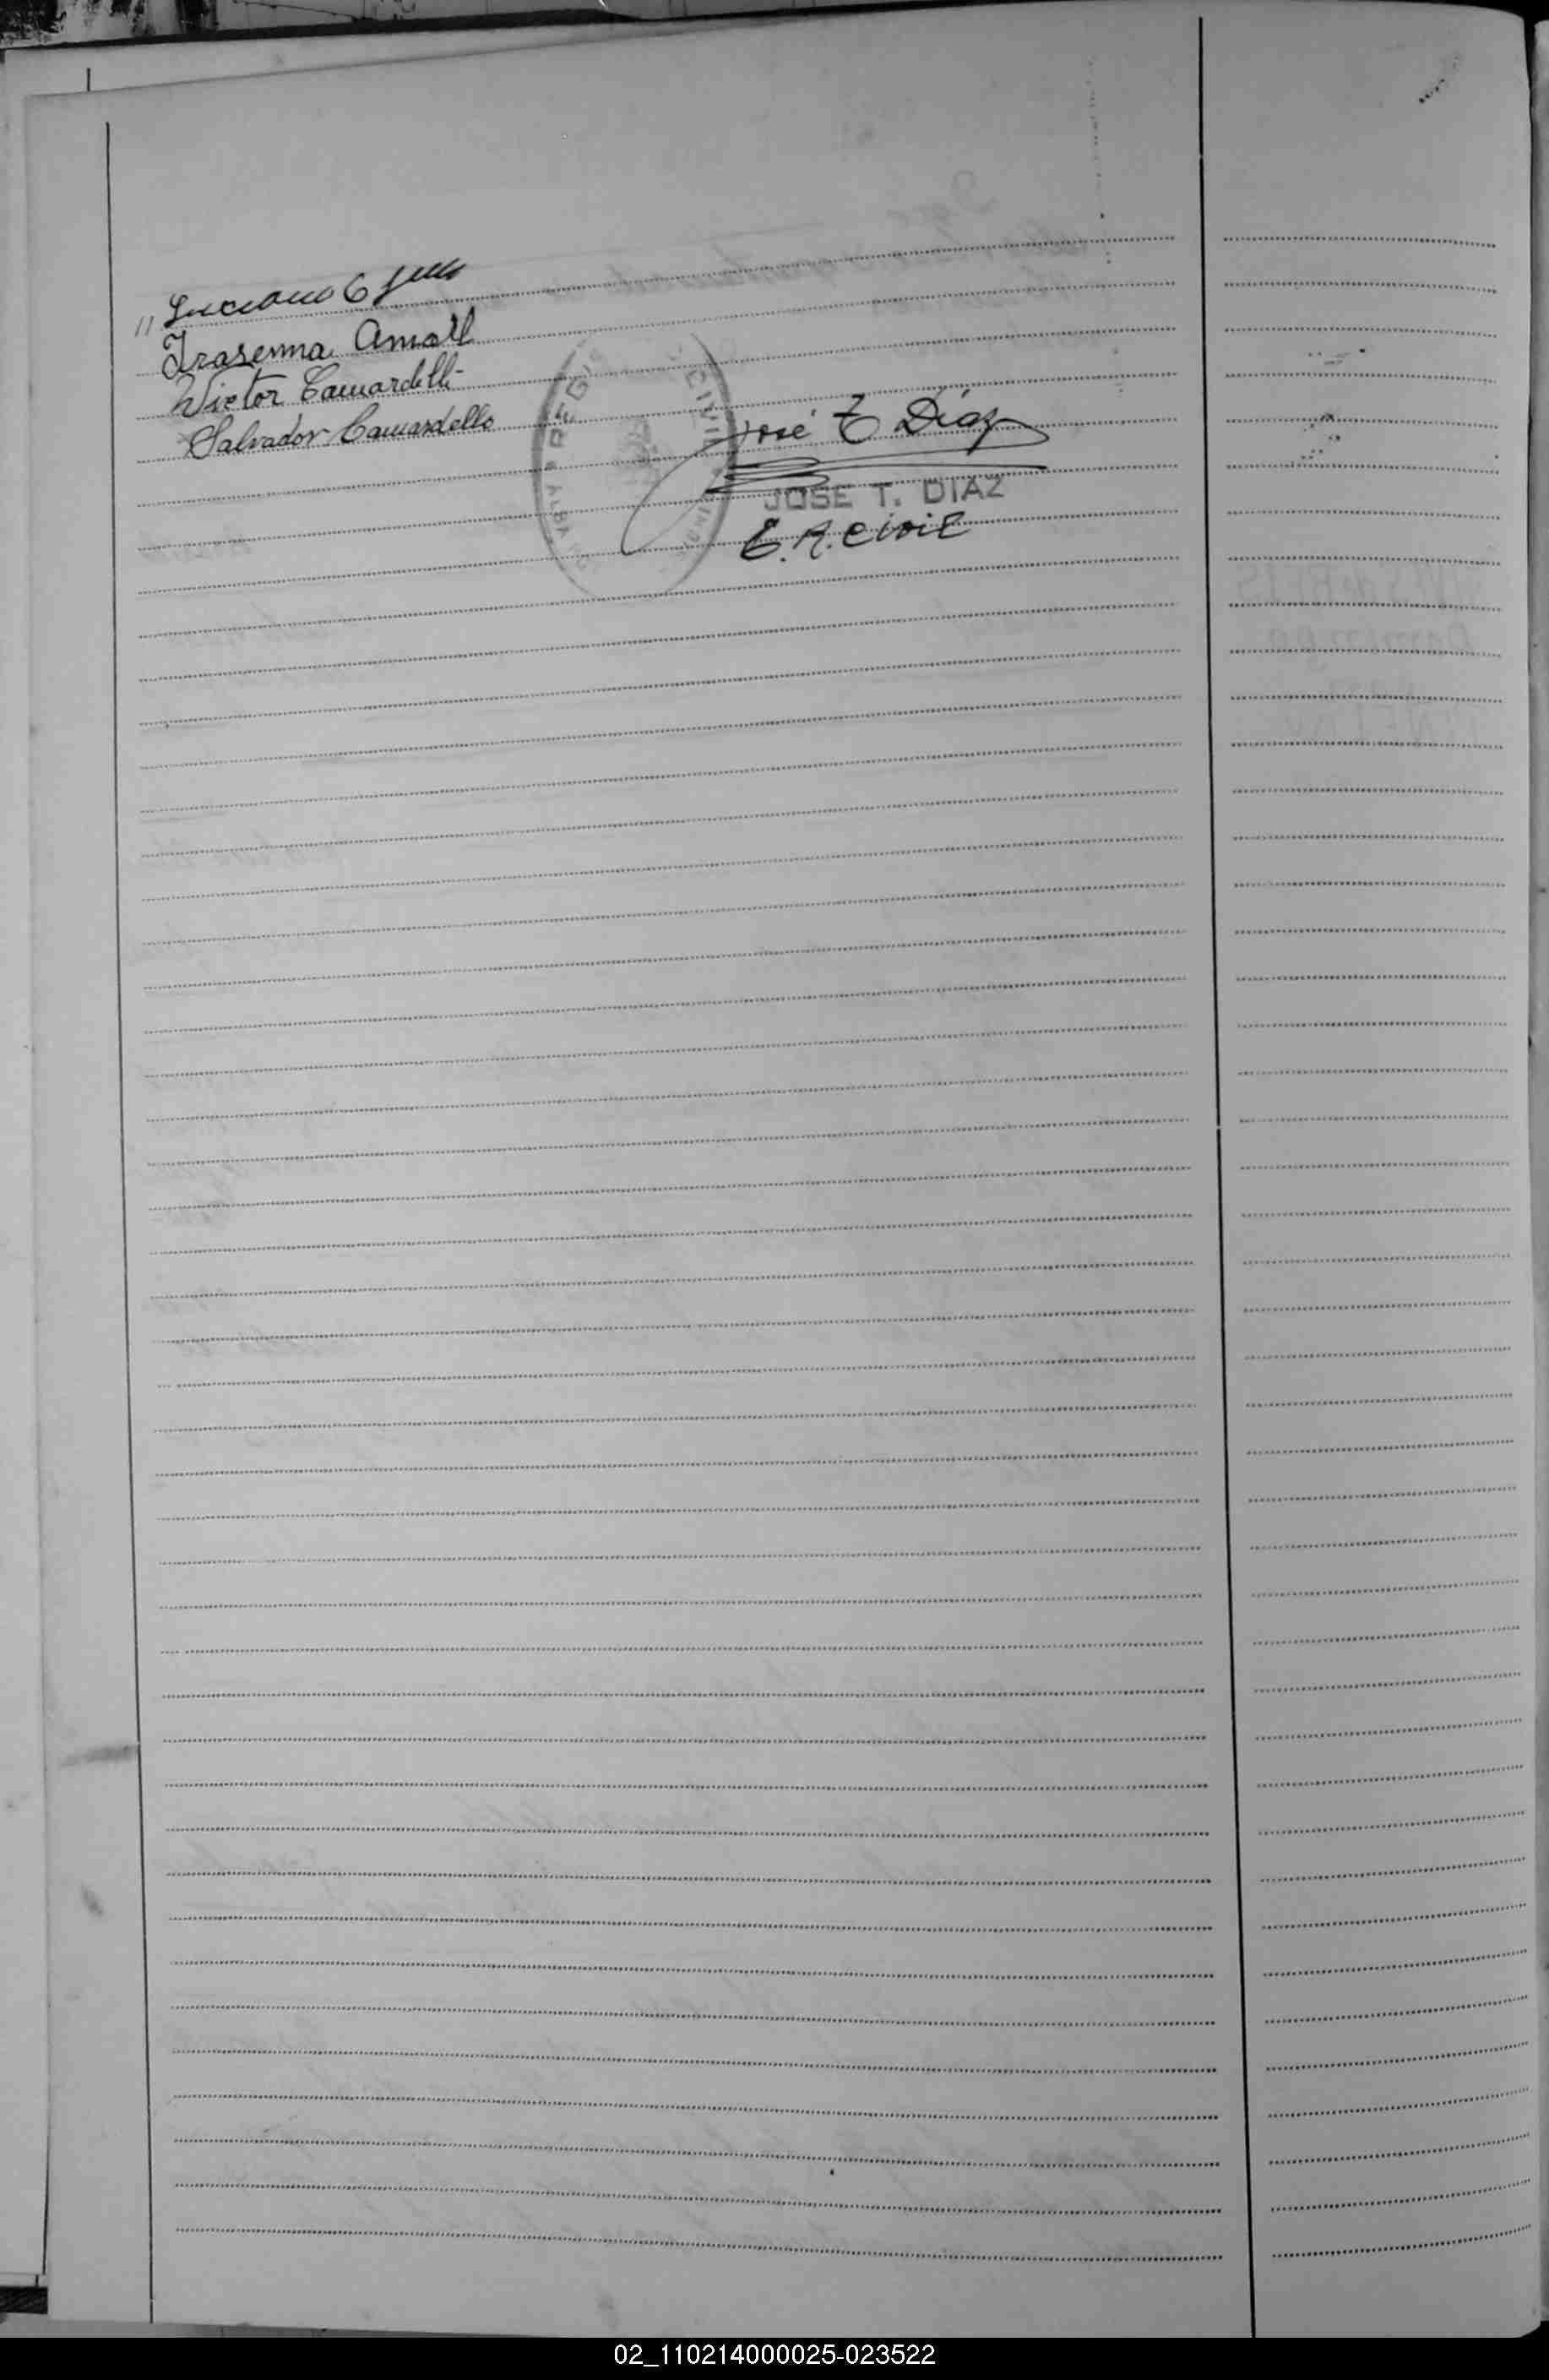 " Luciano
Trasenna Amall
Victor Camardelli
Salvador Camardello
José T Díaz
JOSE T. DIAZ
E. R. CIVIL
02_110214000025-023522